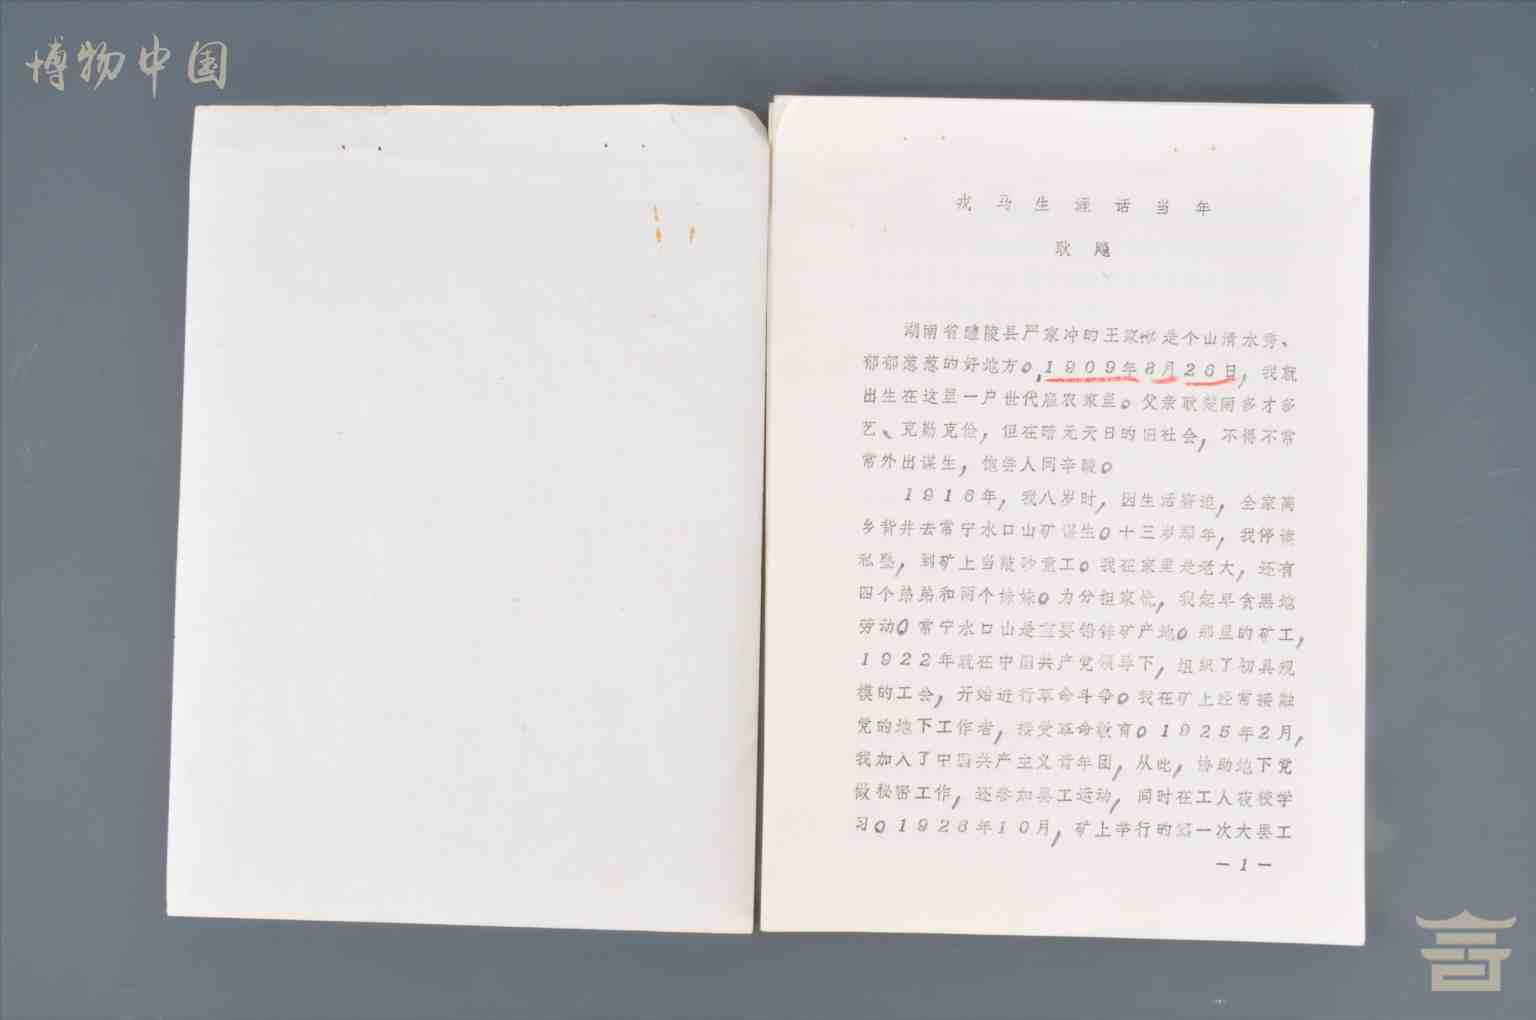 博物中国
戎马生涯话当年
耿飚
湖南省醴陵县严家冲的王家塅是个山清水秀、
郁郁葱葱的好地方。1909年8月26日，我就
出生在这里一户世代雇农家里。父亲耿楚南多才多
艺、克勤克俭，但在暗无天日的旧社会，不得不常
常外出谋生，饱尝人间辛酸。
1916年，我八岁时，因生活窘迫，全家离
乡背井去常宁水口山矿谋生。十三岁那年，我停读
私塾，到矿上当敲砂童工。我在家里是老大，还有
四个弟弟和两个妹妹。为分担家忧，我起早贪黑地
劳动。常宁水口山是主要铅锌矿产地。那里的矿工，
1922年就在中国共产党领导下，组织了初具规
模的工会，开始进行革命斗争。我在矿上经常接触
党的地下工作者，接受革命教育。1925年2月，
我加入了中国共产主义青年团，从此，协助地下党
做秘密工作，还参加罢工运动，同时在工人夜校学
习。1926年10月，矿上举行的第一次大罢工
—1—